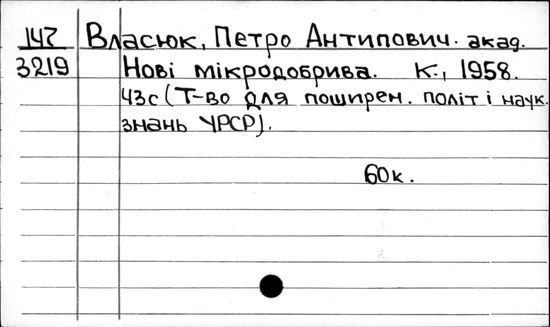 142 Власюк, Петро Антипович. акад.
3219 Нові мікродобрива. К., 1958.
43с (Т-во для поширен. політ і наук.
знань УРСР).
60к.